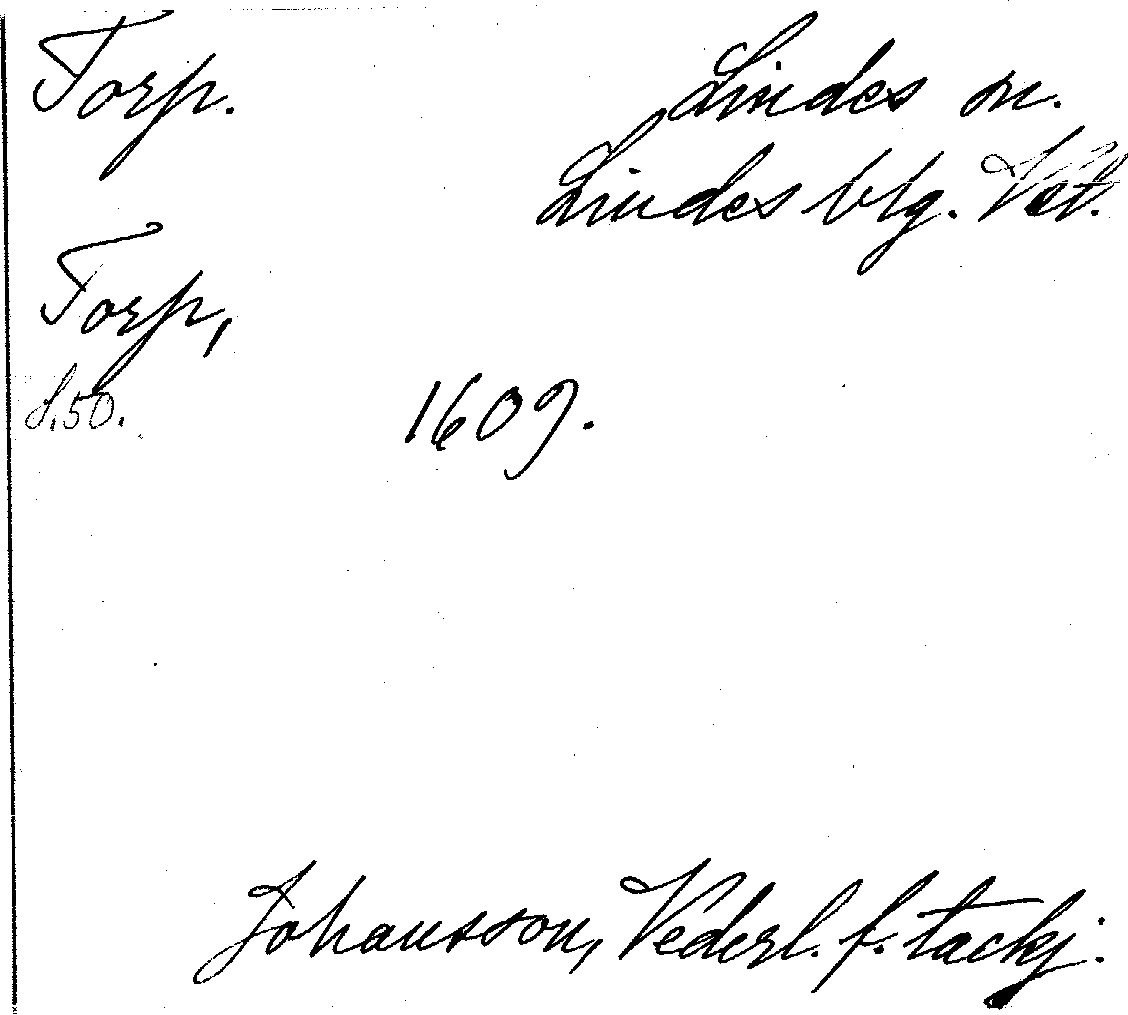 Torp. Lindes sn.
Lindes blg. Vst.
Torp,
s. 50. 1609.
Johansson, Vederl. f. tackj.